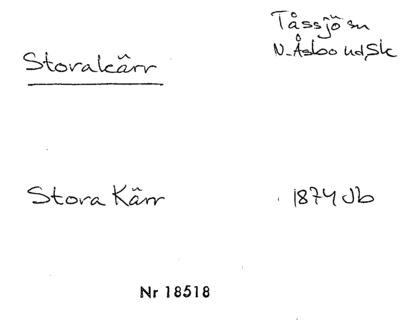 Tåssjö sn
Storakärr
N. Åsbo hd, Sk
Stora Kärr 1874 Jb
Nr 18518